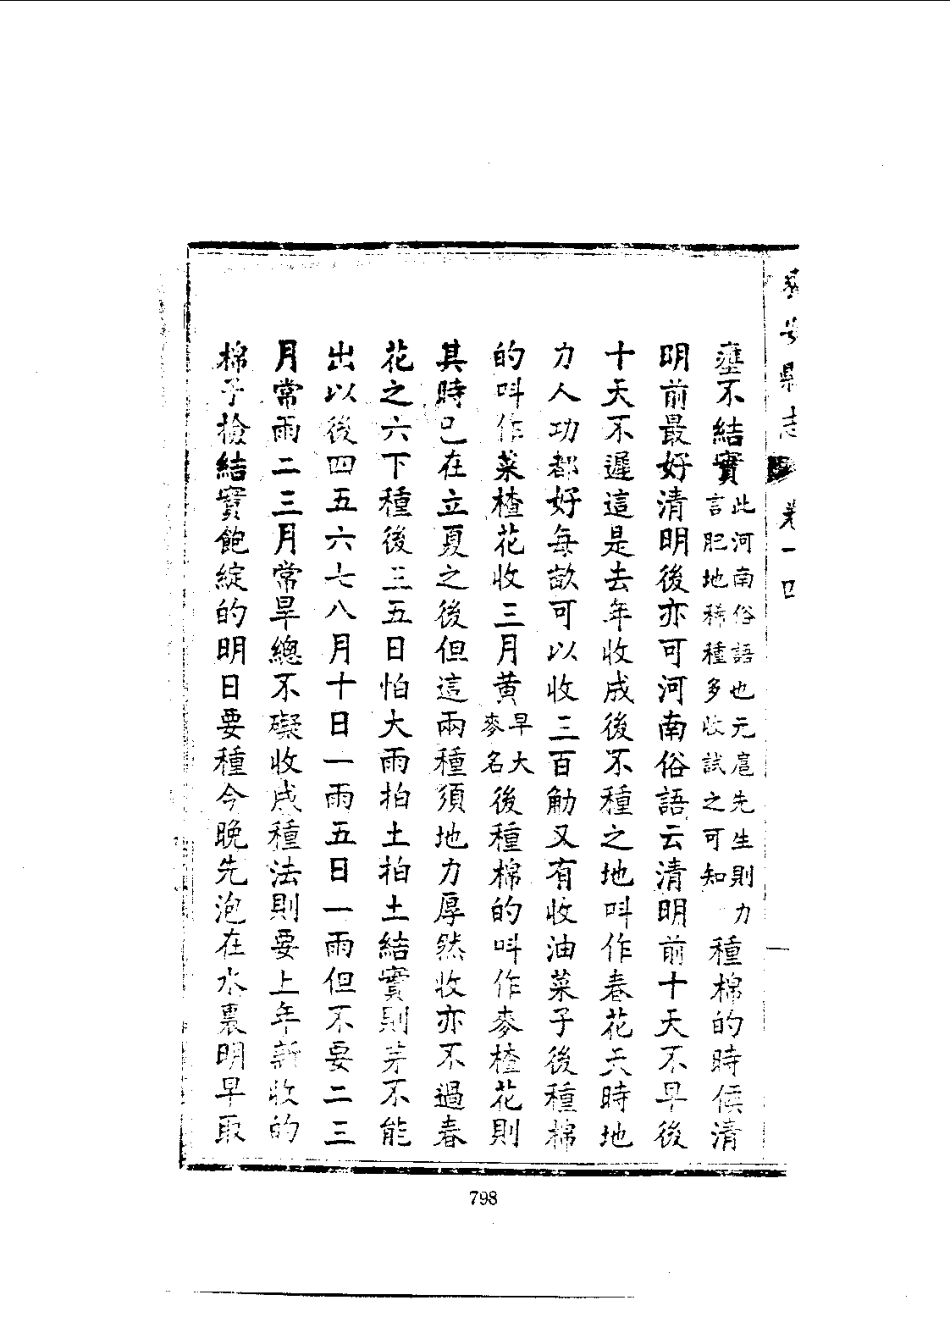 縣志 卷一四
壅不結實此河南俗語也元扈先生則力言肥地稀種多收試之可知種棉的時候清
明前最好清明後亦可河南俗語云清明前十天不早後
十天不遲這是去年收成後不種之地叫作春花天時地
力人功都好每畝可以收三百觔又有收油菜子後種棉
的叫作菜楂花收三月黃早大麥名後種棉的叫作麥楂花則
其時已在立夏之後但這兩種須地力厚然收亦不過春
花之六下種後三五日怕大雨拍土拍土結實則芽不能
出以後四五六七八月十日一雨五日一雨但不要二三
月常雨二三月常旱總不礙收成種法則要上年新收的
棉子檢結實飽綻的明日要種今晚先泡在水裏明早取
798